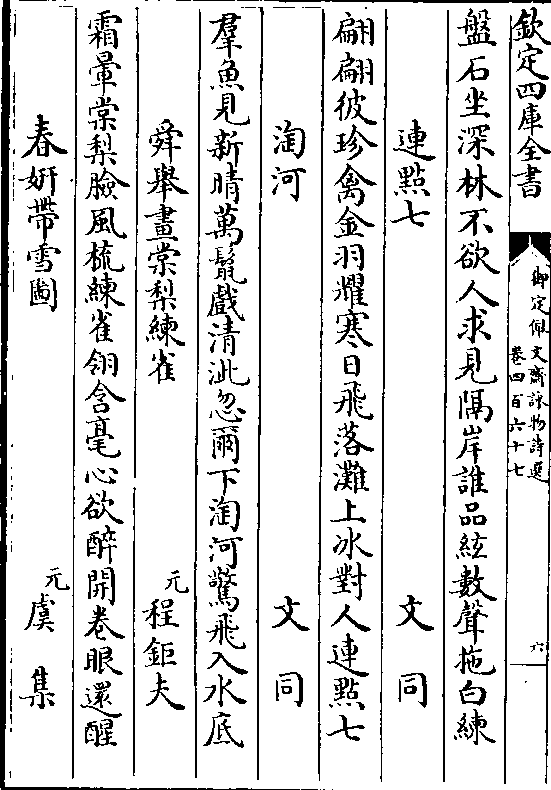 欽定四庫全書
御定佩文齋詠物詩選
卷四百六十七
六
盤石坐深林不欲人求見隔岸誰品絃數聲拖白練
連點七 文同
翩翩彼珍禽金羽耀寒日飛落灘上冰對人連點七
淘河 文同
羣魚見新晴萬鬛戲清泚忽爾下淘河驚飛入水底
舜舉畫棠梨練雀 元程鉅夫
霜暈棠梨臉風梳練雀翎含毫心欲醉開卷眼還醒
春妍帶雪圖 元虞集